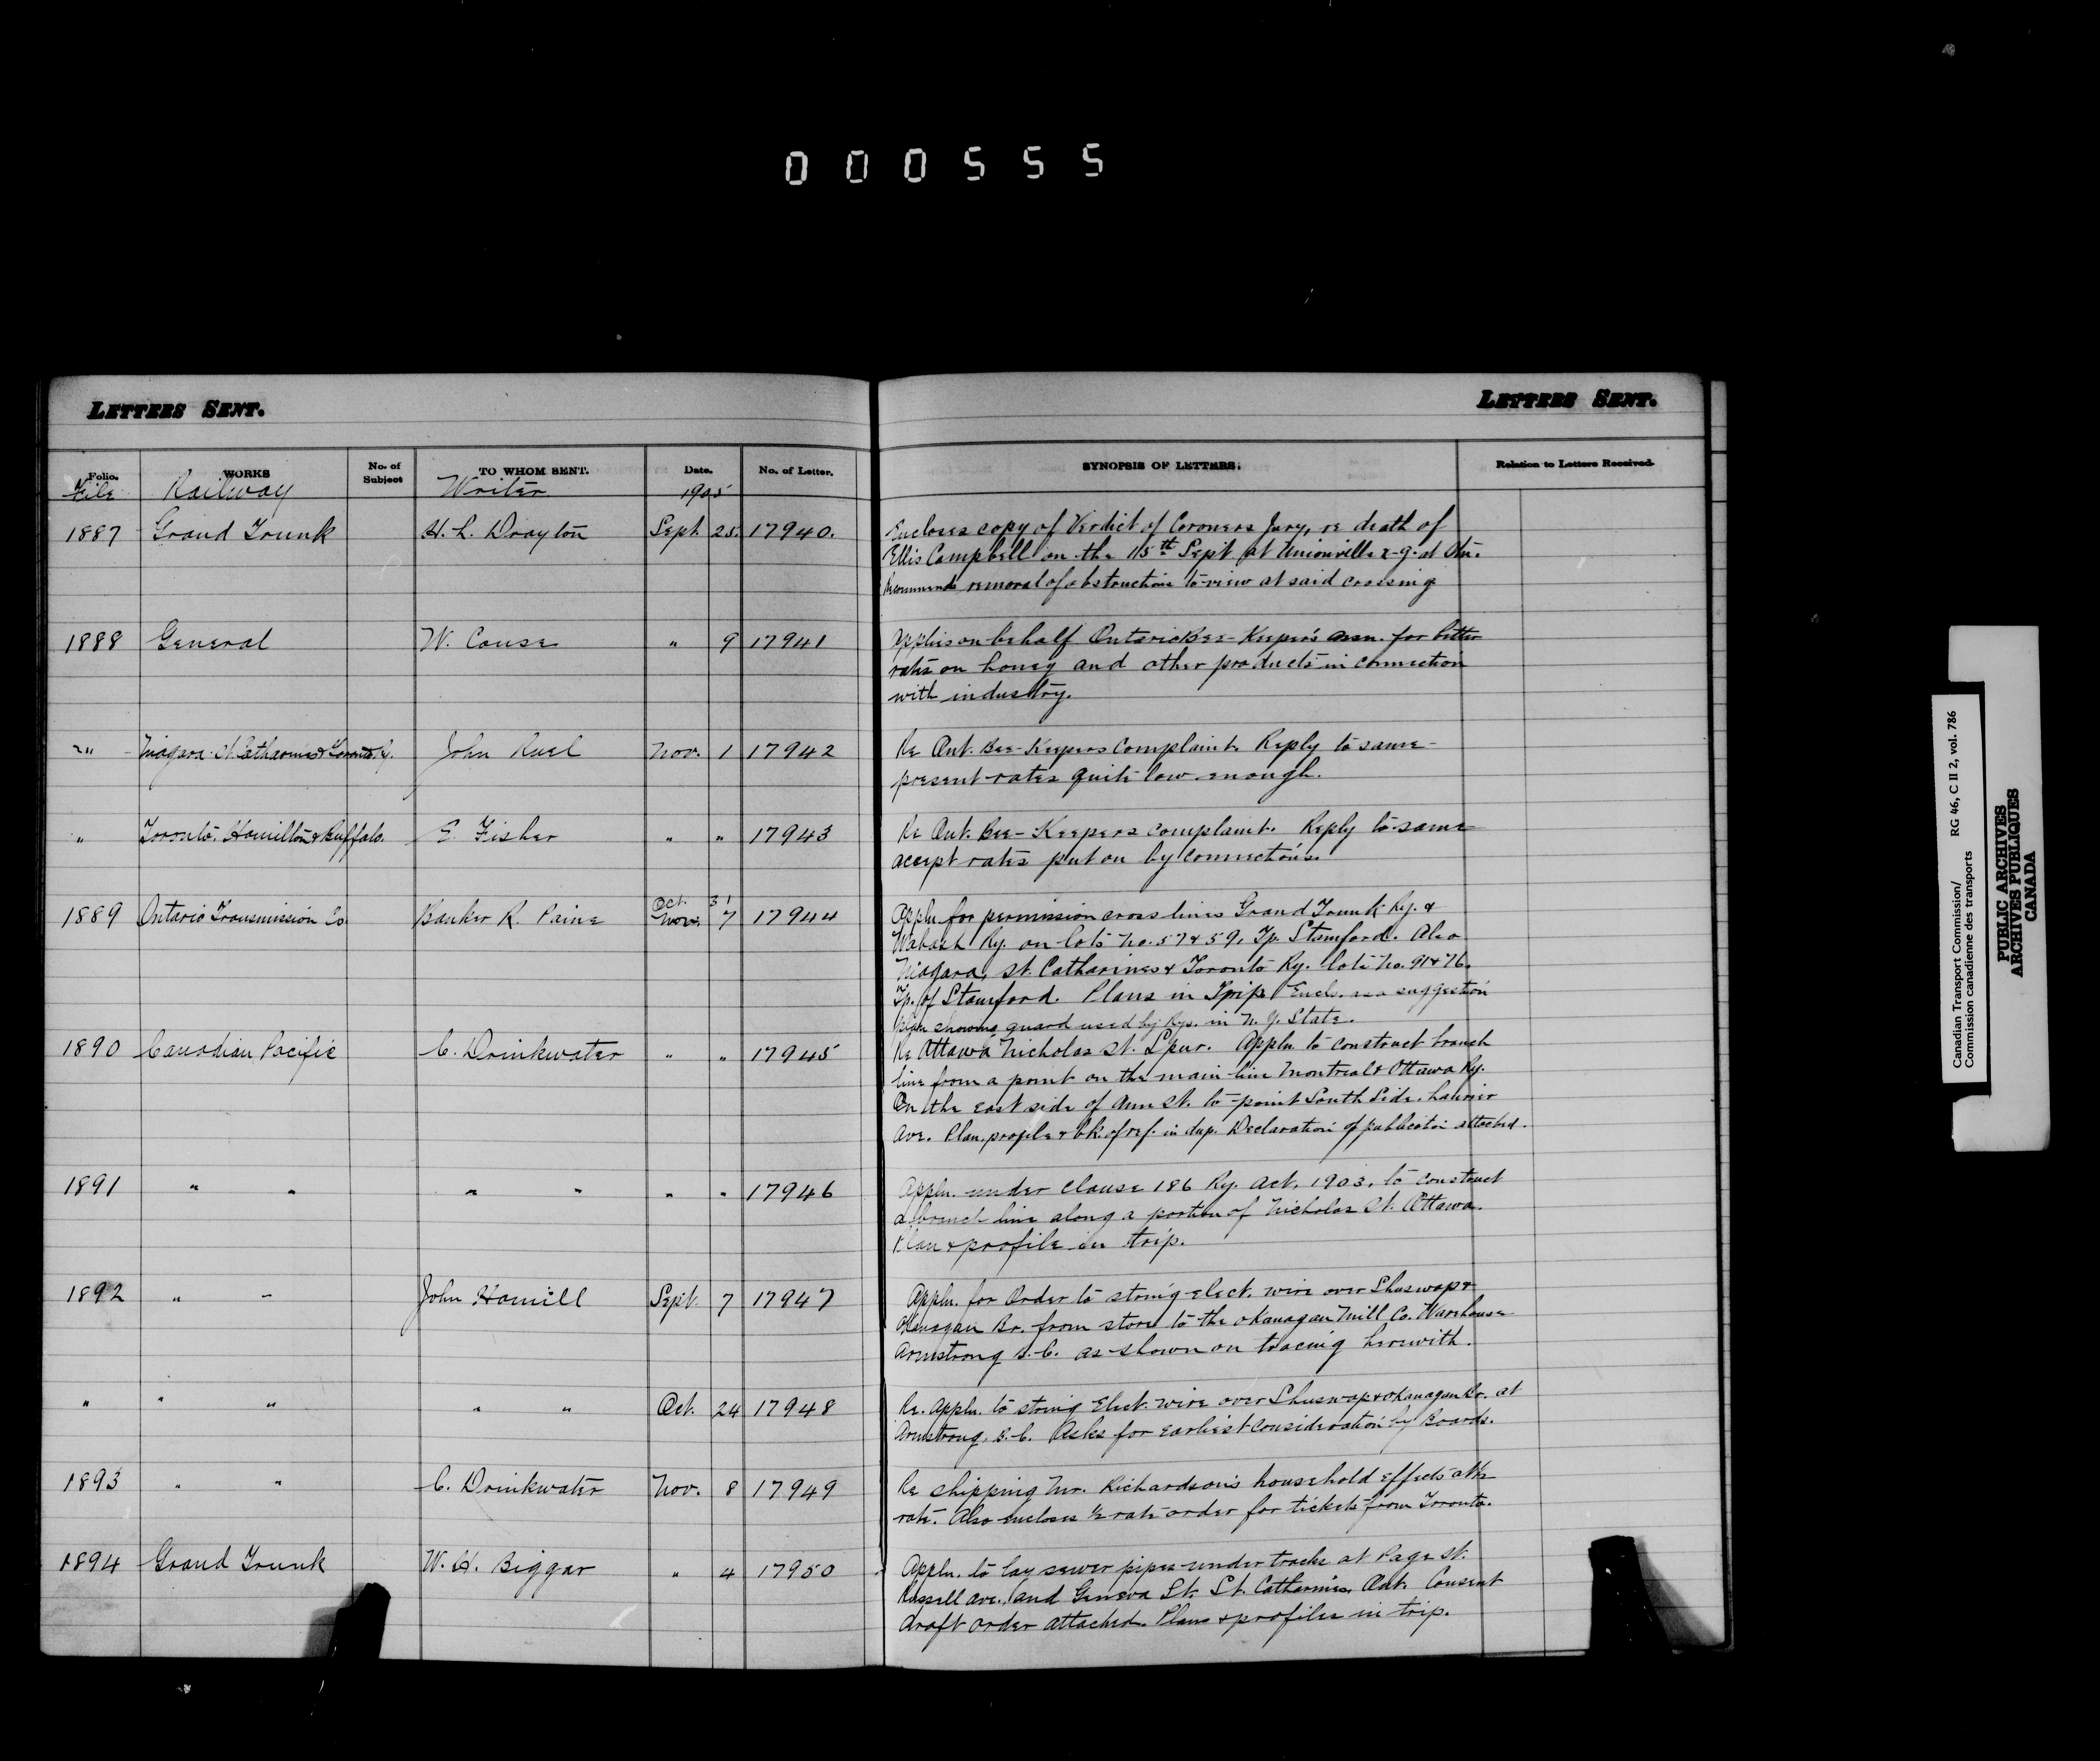 000555
LETTERS SENT.
LETTERS SENT.
Folio. WORKS No. of Subject TO WHOM SENT. Date. No. of Letter. SYNOPSIS OF LETTERS. Relation to Letters Received.
File Railway Writer 1905
1887 Grand Trunk H. L. Drayton Sept. 25. 17940. Encloses copy of Verdict of Coroners Jury, re death of
Ellis Campbell on the 15th Sept at Unionville
Recommends removal of obstruction to view at said crossing
1888 General W. Couse " 9 17941 Applies on behalf Ontario Bee-Keeper's Assn. for better
rates on honey and other products in connection
with industry.
" Niagara St. Catharines & Toronto Ry. John Ruel Nov. 1 17942 Re Ont. Bee-Keepers Complaint. Reply to same-
present rates quite low enough.
" Toronto, Hamilton & Buffalo. E. Fisher " " 17943 Re Ont. Bee-Keepers complaint. Reply to same
accept rates put on by connections.
1889 Ontario Transmission Co Banker R. Paine Oct. 31 Nov. 7 17944 Appln. for permission cross lines Grand Trunk Ry. &
Wabash Ry. on lots No. 57 & 59, Tp. Stamford. Also
Niagara, St. Catharines & Toronto Ry. lots No. 91 & 76.
Tp. of Stamford. Plans in Trip. Encls. as a suggestion
plan showing guard used by Rys. in N. Y. State.
1890 Canadian Pacific C. Drinkwater " " 17945 Re Ottawa Nicholas St. Spur. Appln. to construct branch
line from a point on the main line Montreal & Ottawa Ry.
On the east side of Ann St. to point South Side Laurier
Ave. Plan, profile & bk. of ref. in dup. Declaration of publication attached.
1891 " " " " " " 17946 Appln. under Clause 186 Ry. Act, 1903, to construct
a branch line along a portion of Nicholas St. Ottawa.
Plan & profile in trip.
1892 " " John Hamill Sept. 7 17947 Appln. for Order to string elect. wire over Shuswap &
Okanagan Br. from store to the Okanagan Mill Co. Warehouse
Armstrong B.C. as shown on tracing herewith.
" " " " " Oct. 24 17948 Re. Appln. to string Elect. wire over Shuswap & Okanagan Br. at
Armstrong, B.C. Asks for earliest consideration by Boards.
1893 " " C. Drinkwater Nov. 8 17949 Re shipping Mr. Richardson's household effects at ½
rate. Also encloses ½ rate order for tickets from Toronto.
1894 Grand Trunk W. H. Biggar " 4 17950 Appln. to lay sewer pipes under tracks at Page St.
Russell Ave., and Geneva St. St. Catharines, Ont. Consent
draft order attached. Plans & profiles in trip.
Canadian Transport Commission/ RG 46, C II 2, vol. 786
Commission canadienne des transports
PUBLIC ARCHIVES
ARCHIVES PUBLIQUES
CANADA